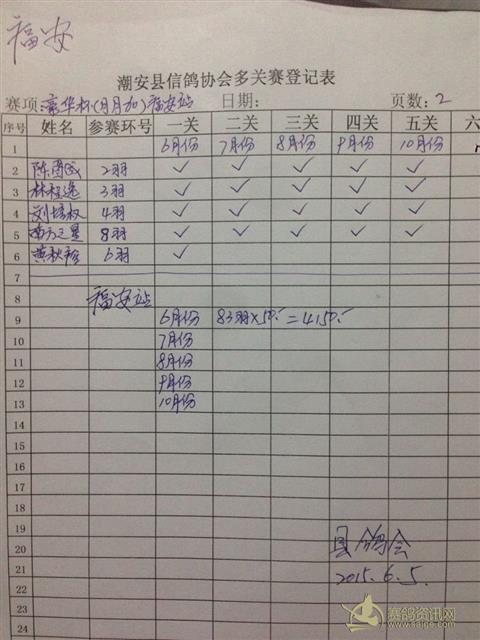 福安
潮安县信鸽协会多关赛登记表
赛项:豪华杯(月月加)福安站 日期: 页数:2
序号 姓名 参赛环号 一关 二关 三关 四关 五关 六
1 6月份 7月份 8月份 9月份 10月份
2 陈 2羽 ✓ ✓ ✓ ✓ ✓
3 林程逸 3羽 ✓ ✓ ✓ ✓ ✓
4 刘培权 4羽 ✓ ✓ ✓ ✓ ✓
5 南方之星 8羽 ✓ ✓ ✓ ✓ ✓
6 黄秋 6羽 ✓
7
8 福安站
9 6月份 83羽×50.=4150.
10 7月份
11 8月份
12 9月份
13 10月份
14
15
16
17
18
19
20 县鸽会
21 2015.6.5.
22
23
24
赛鸽资讯网
www.saige.com